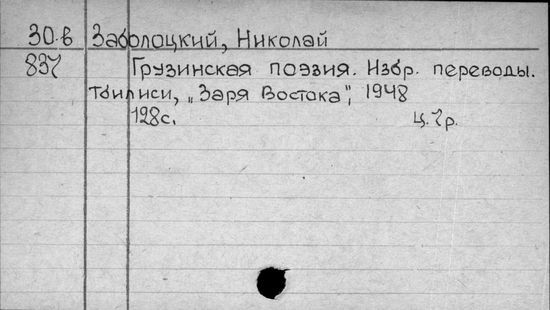 30.в Заболоцкий, Николай
837 Грузинская поэзия. Избр. переводы.
Тбилиси, „Заря Востока", 1948
128с. ц. 7р.